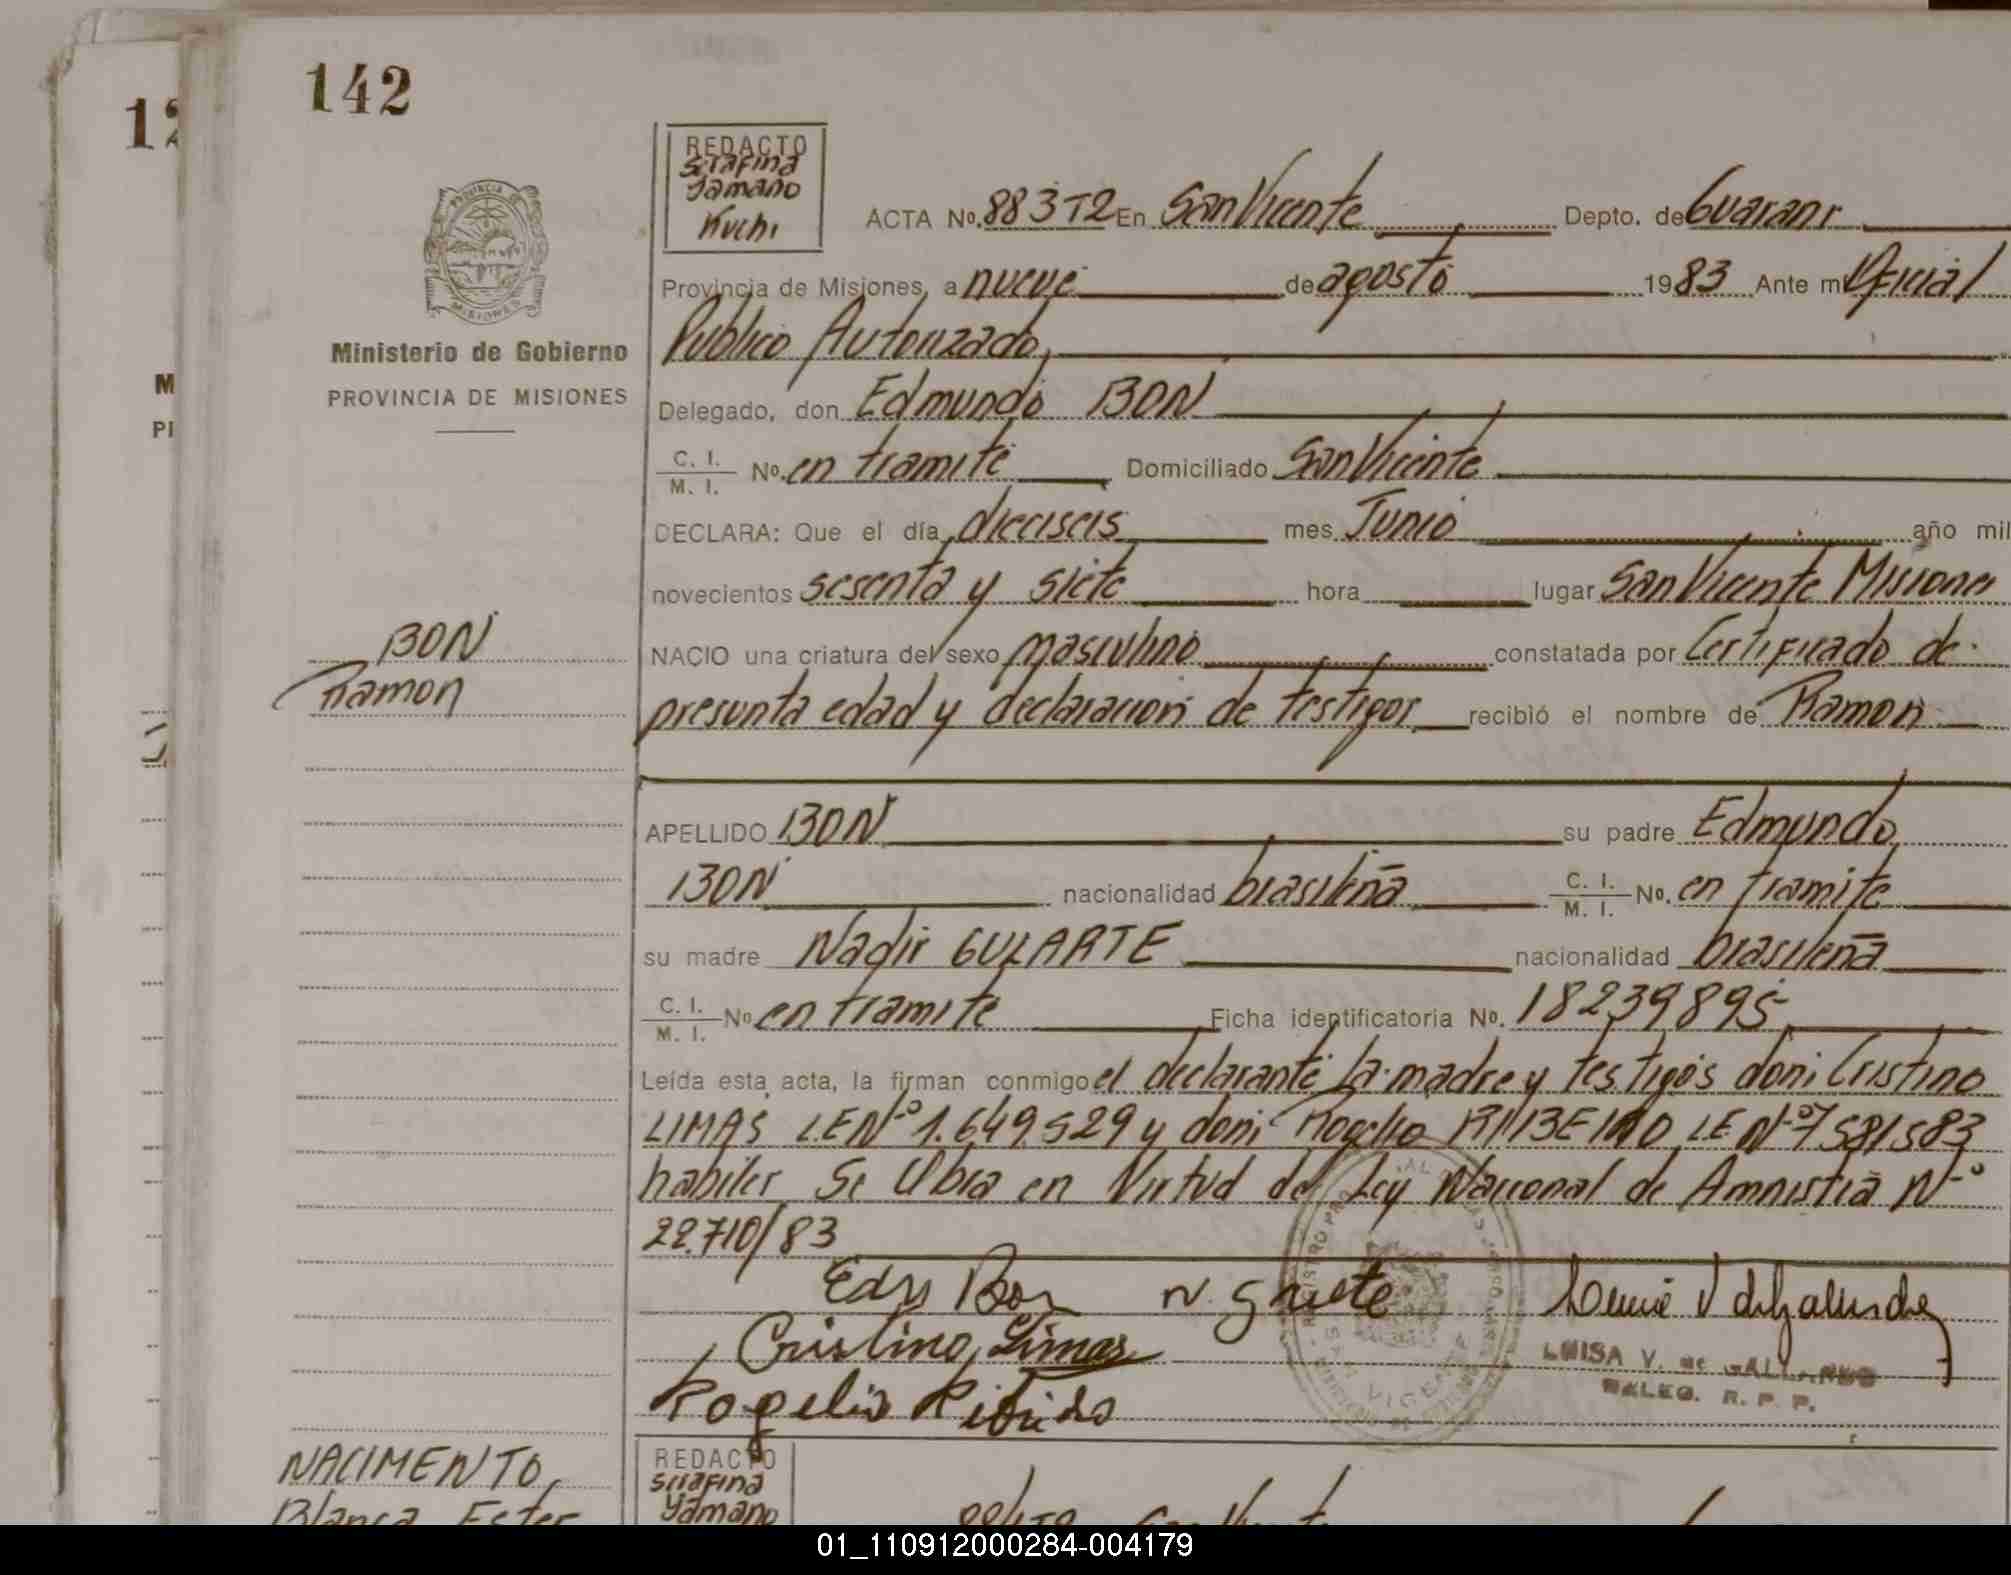 142
12
REDACTO
Serafina
Yamano
Kuchi
ACTA No. 883T2 En San Vicente Depto. de Guarani
Provincia de Misiones, a nueve de agosto 1983 Ante mi Oficial
Publico Autorizado,
PROVINCIA
MISIONES
Ministerio de Gobierno
PROVINCIA DE MISIONES
M
PI
Delegado, don Edmundo BON
C. I.
M. I. No. en tramite Domiciliado San Vicente
DECLARA: Que el día dieciseis mes Junio año mil
novecientos sesenta y siete hora lugar San Vicente Misiones
BON
Ramon
NACIO una criatura del sexo masculino constatada por Certificado de
presunta edad y declaracion de testigos recibió el nombre de Ramon
APELLIDO BON su padre Edmundo
BON nacionalidad brasileña C. I.
M. I. No. en tramite
su madre Nadir GULARTE nacionalidad brasileña
C. I.
M. I. No en tramite Ficha identificatoria No. 18239895
Leída esta acta, la firman conmigo el declarante la madre y testigos don: Cristino
LIMAS LE Nº 1.649.529 y don: Rogelio RIBEIRO LE Nº 7581583
habiles Se Obra en Virtud del Ley Nacional de Amnistia Nº
22.710/83
Bon N. Gularte
Cristino Limas
LUISA V. de GALLARDO
DELEG. R. P. P.
Rogelio Ribeiro
NACIMENTO
Blanca Ester
REDACTO
Serafina
Yamano
01_110912000284-004179